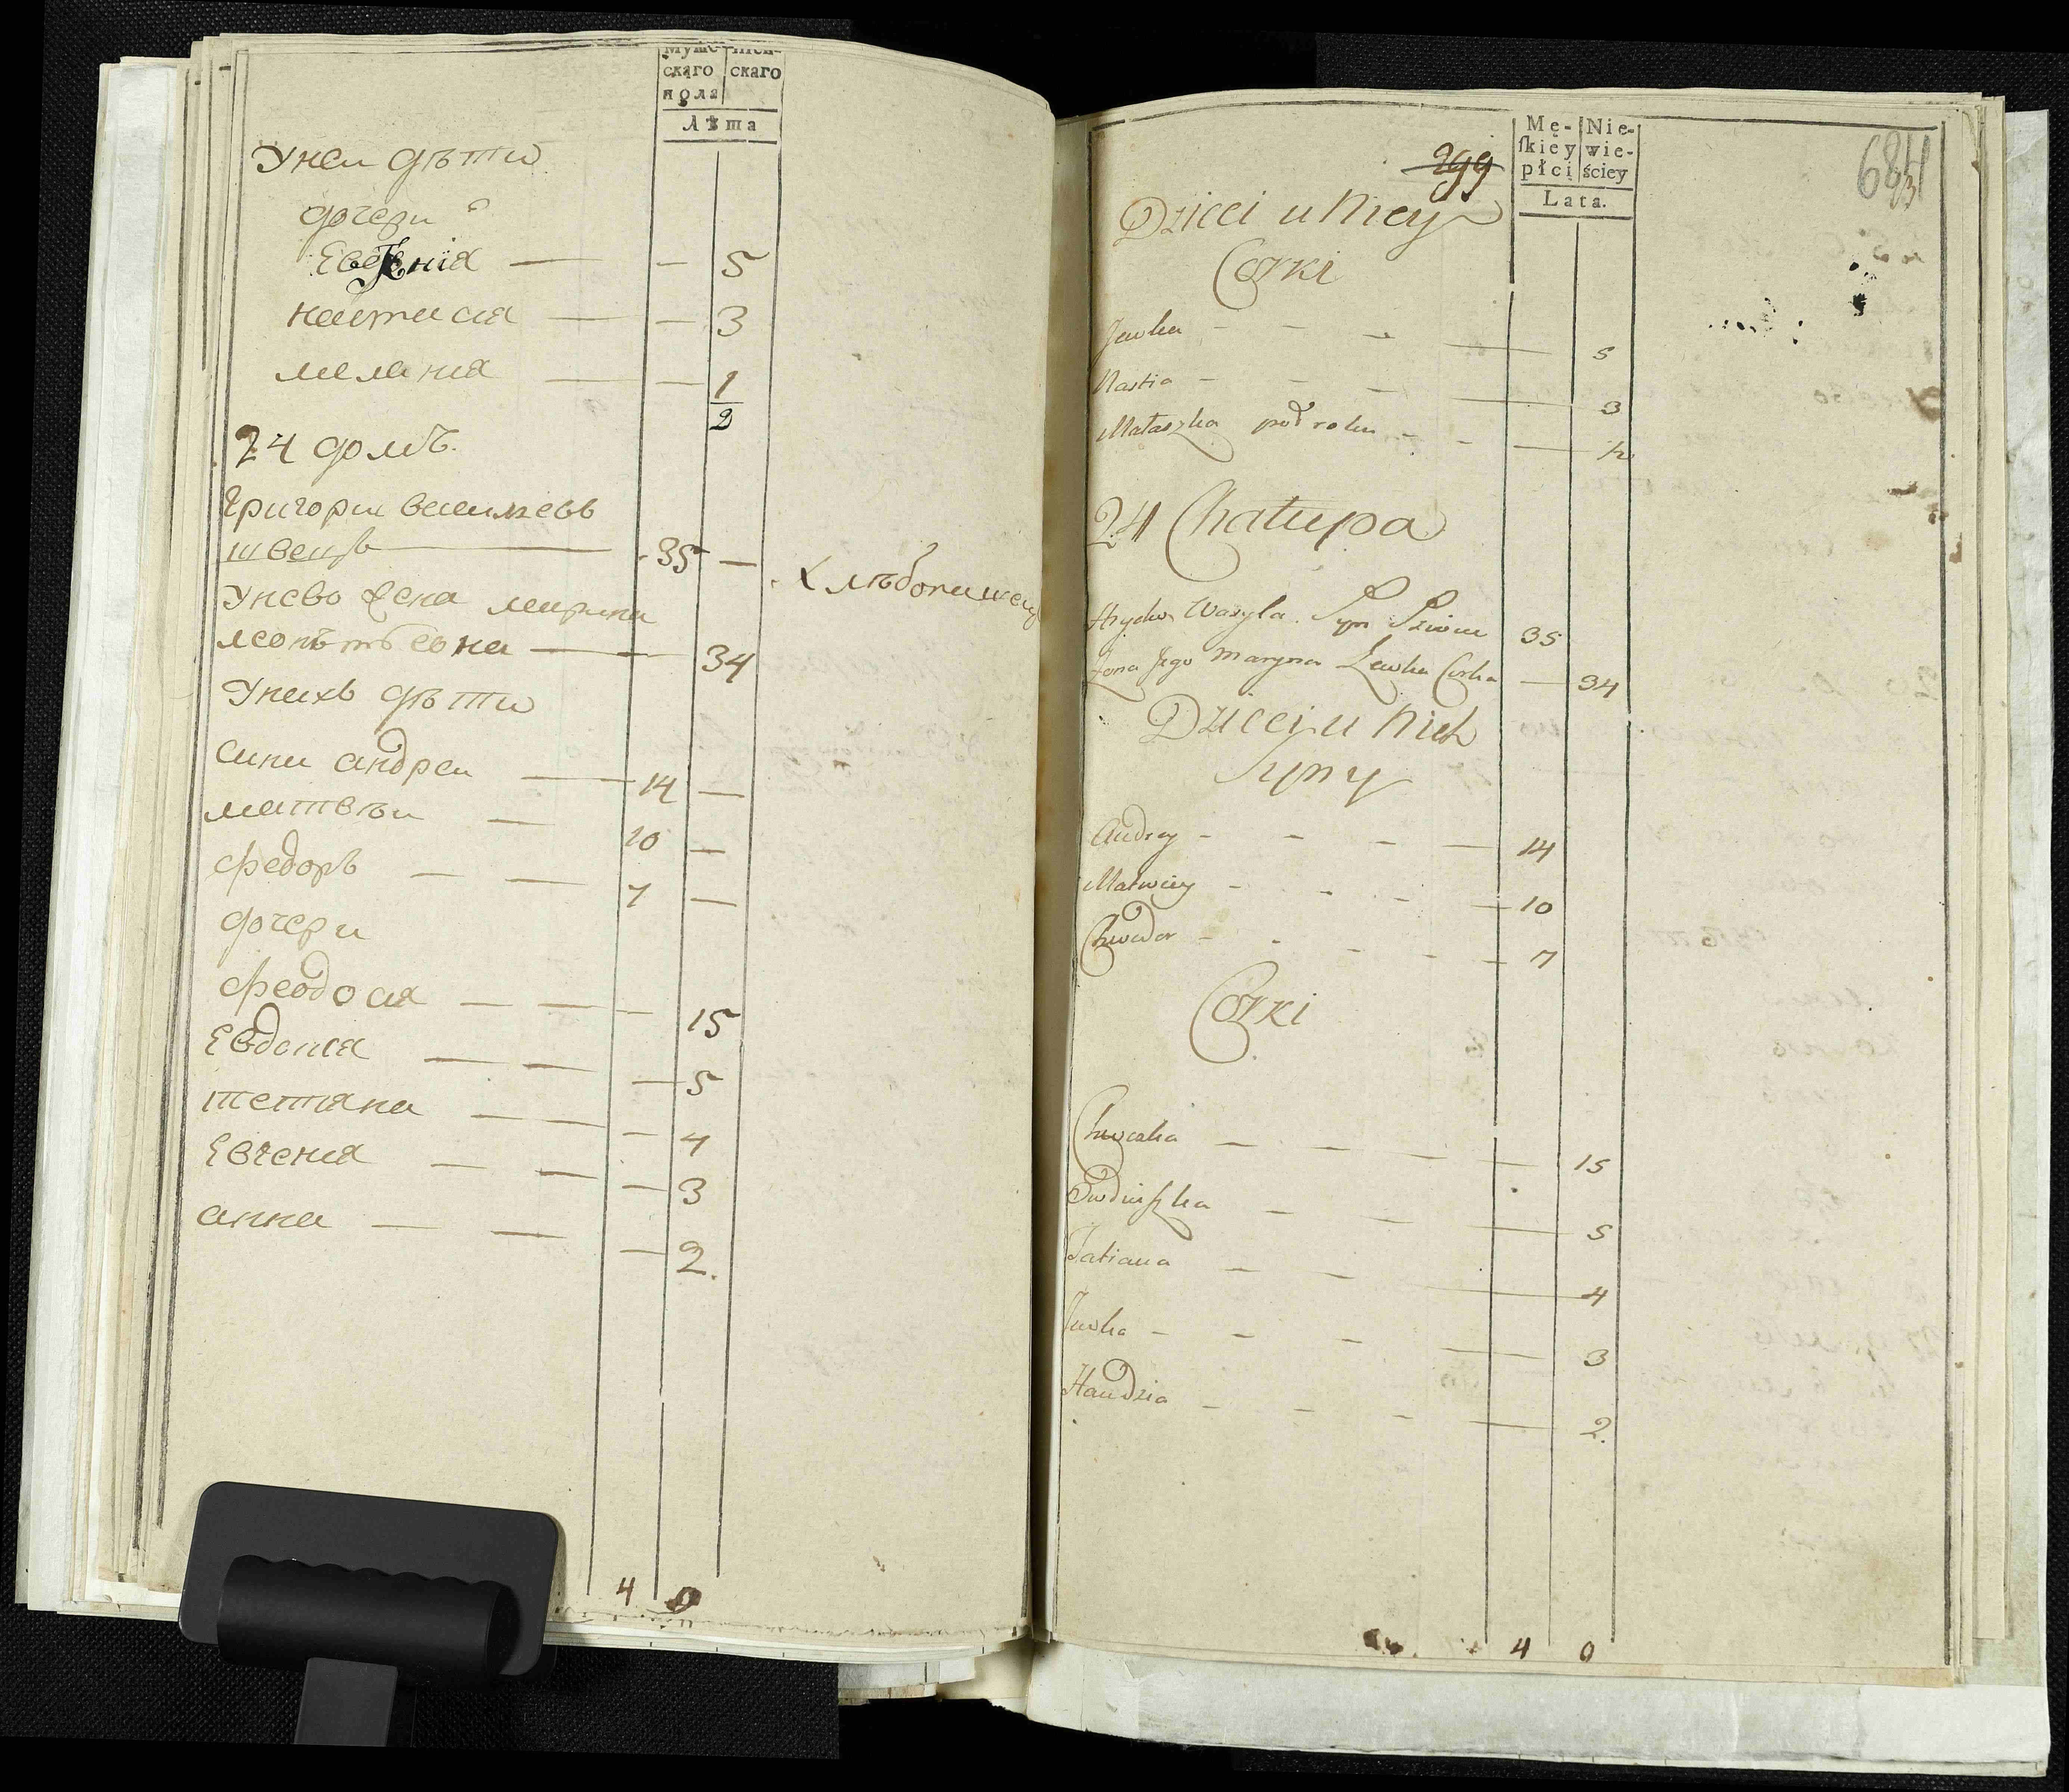 Муже-
скаго скаго
пола
Лѣта
Унеи дѣти
дочери
Евгения — — 5
настасия — — 3
мелания — — 1/2
24 домъ.
Григории василиевъ
швецъ — 35 —
Хлѣбопашецъ
Унево жена марина
леонтьевна — 34
Унихъ дѣти
сини андреи — 14 —
матвѣи — 10 —
федоръ — — 7 —
дочери
феодосия — — — 15
Евдокия — — — 5
тетяна — — — 4
Евгения — — — 3
анна — — — 2.
4 0
Mę- Nie-
ſkiey wie-
płci ściey
Lata.
299
684
Dzieci u Niey
Corki
Jewka — 5
Nastia — 3
Małaszka pod roku — ½
24 Chałupa
Hryćko Wasyla Syn Szwiec 35
Żona Jego Maryna Lewka Corka — 34
Dzieci u Nich
Syny
Andrey — 14
Matwiey — 10
Chwedor — 7
Corki
Chweska — 15
Owdiuſzka — 5
Tatiana — 4
Jewka — 3
Handzia — 2.
4 0